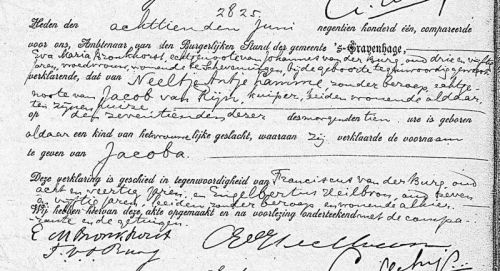 2825
Heden den achttienden Juni negentien honderd één, compareerde
voor ons, Ambtenaar van den Burgerlijken Stand der gemeente 's-Gravenhage,
Eva Maria Bronkhorst, echtgenoot van Johannes van der Burg, oud drie en vijftig
jaren, vroedvrouw, wonende te Scheveningen, bij de geboorte tegenwoordig geweest
verklarende, dat van Neeltje Antje Pammel, zonder beroep, echtge-
noote van Jacob van Rijn, kuiper, beiden wonende aldaar,
ten zijnen huize
op den zeventienden dezer des morgens tien ure is geboren
aldaar een kind van het vrouwelijke geslacht, waaraan zij verklaarde de voornaam
te geven van Jacoba.
Deze verklaring is geschied in tegenwoordigheid van Franciscus van der Burg, oud
acht en veertig jaren, en Engelbertus Heilbron, oud zeven
en vijftig jaren, beiden zonder beroep en wonende alhier.
Wij hebben hiervan deze akte opgemaakt en na voorlezing onderteekend met de compa-
rante en de getuigen.
E M Bronkhorst
F. v. d Burg